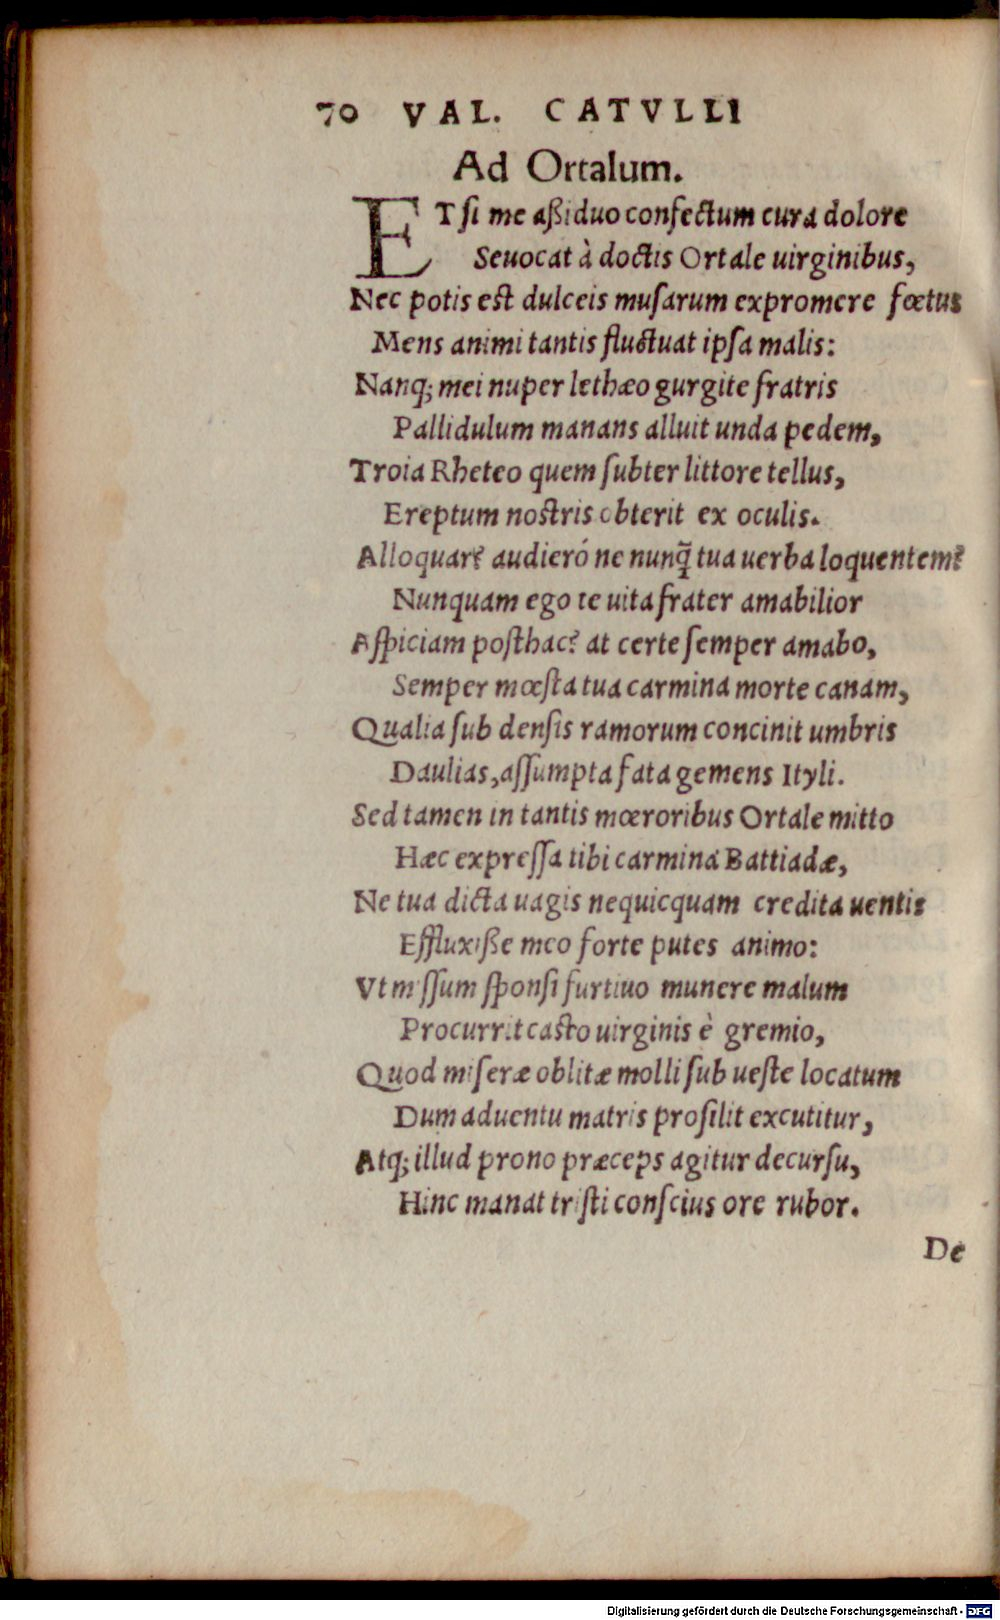 70 VAL. CATVLLI
Ad Ortalum.
ETſi me aßiduo confectum cura dolore
Seuocat à doctis Ortale uirginibus,
Nec potis est dulceis muſarum expromere fœtus
Mens animi tantis fluctuat ipſa malis:
Nanq; mei nuper lethæo gurgite fratris
Pallidulum manans alluit unda pedem,
Troia Rheteo quem ſubter littore tellus,
Ereptum noſtris obterit ex oculis.
Alloquar? audieró ne nunq̃ tua uerba loquentem?
Nunquam ego te uita frater amabilior
Aſpiciam poſthac? at certe ſemper amabo,
Semper mœſta tua carmina morte canam,
Qualia ſub denſis ramorum concinit umbris
Daulias, aſſumpta fata gemens Ityli.
Sed tamen in tantis mœroribus Ortale mitto
Hæc expreſſa tibi carmina Battiadæ,
Ne tua dicta uagis nequicquam credita uentis
Effluxiße meo forte putes animo:
Vt miſſum ſponſi furtiuo munere malum
Procurrit caſto uirginis è gremio,
Quod miſeræ oblitæ molli ſub ueſte locatum
Dum aduentu matris proſilit excutitur,
Atq; illud prono præceps agitur decurſu,
Hinc manat triſti conſcius ore rubor.
De
Digitalisierung gefördert durch die Deutsche Forschungsgemeinschaft - DFG